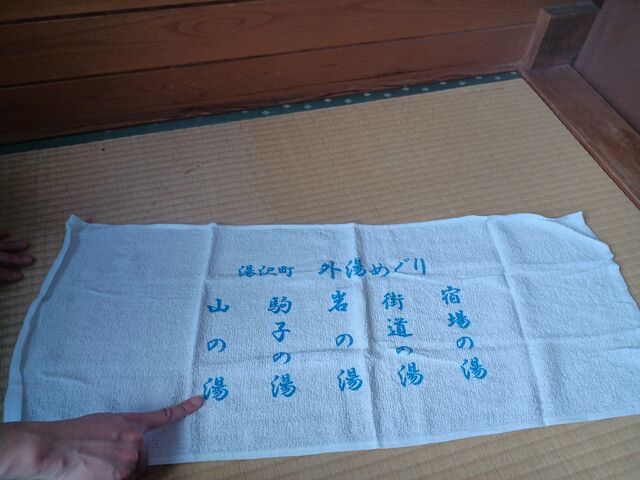 湯沢町 外湯めぐり
宿場の湯
街道の湯
岩の湯
駒子の湯
山の湯